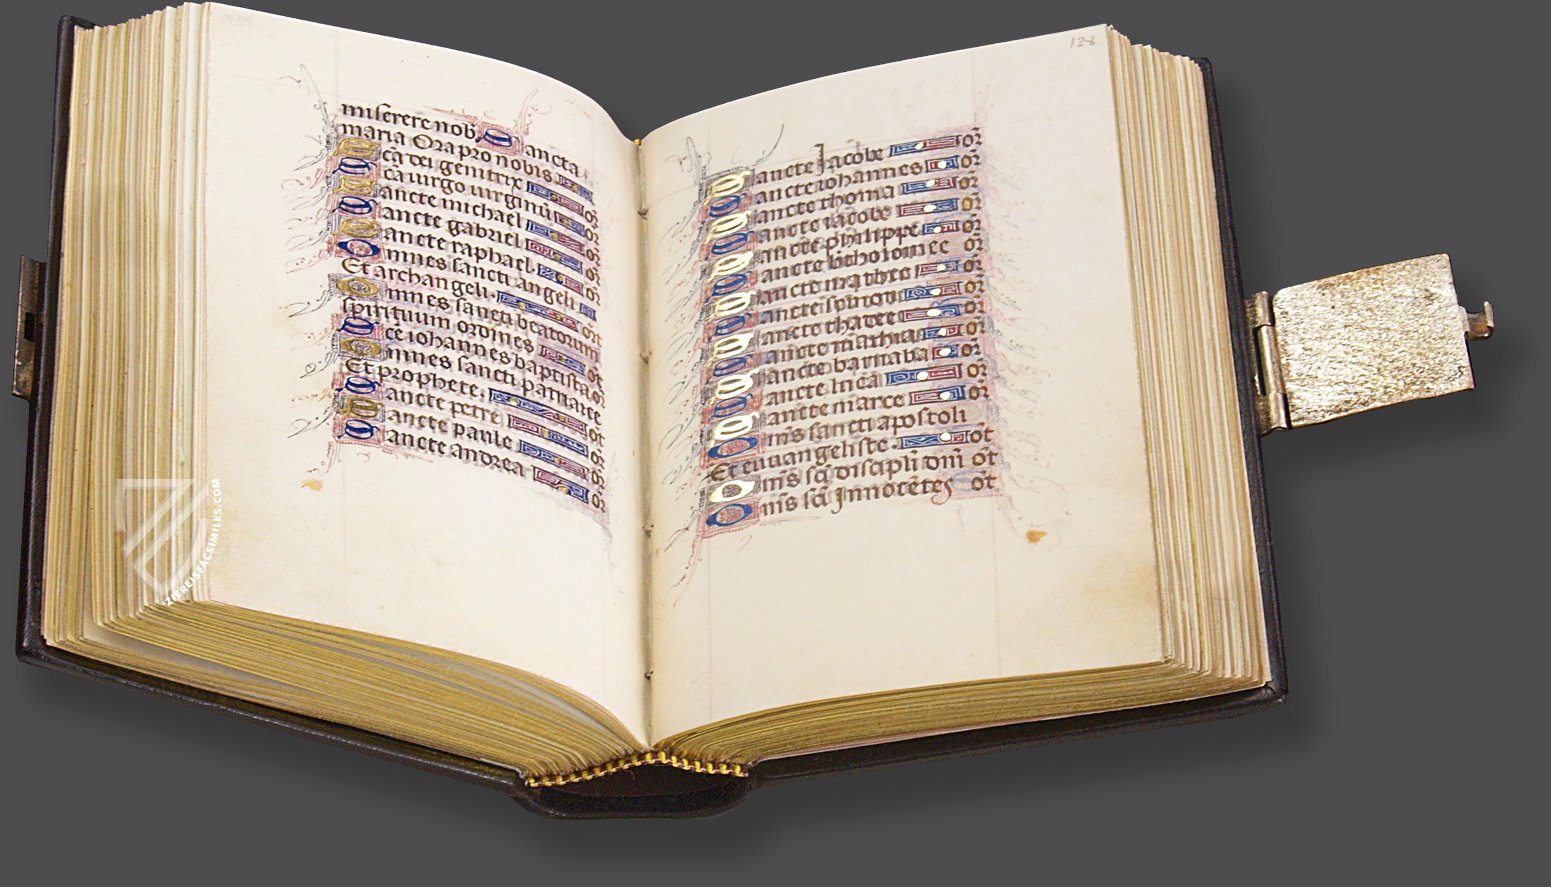 miserere nob̄. Sancta
maria Ora pro nobis
Sc̄a dei genitrix or̄
Sc̄a uirgo uirginū or̄
Sancte michael or̄
Sancte gabriel or̄
Sancte raphael or̄
Omnes sancti angeli
Et archangeli. or̄t
Omnes sancti beatorum
spirituum ordines ot
Sc̄e iohannes baptista. or̄
Omnes sancti patriarce
Et prophete. ot
Sancte petre or̄
Sancte paule or̄
Sancte andrea or̄
128
Sancte Jacobe or̄
Sancte iohannes or̄
Sancte thoma or̄
Sancte iacobe or̄
Sancte philippe or̄
Sancte bͬtholomee or̄
Sancte mathee or̄
Sancte symon or̄
Sancte thadee or̄
Sancte mathia or̄
Sancte barnaba or̄
Sancte luca or̄
Sancte marce or̄
Om̄s sancti apostoli
Et euuangeliste. ot
Om̄s sc̄i discipli dn̄i ot
Om̄s sc̄i Innocētes ot
ZIEREISFACSIMILES.COM